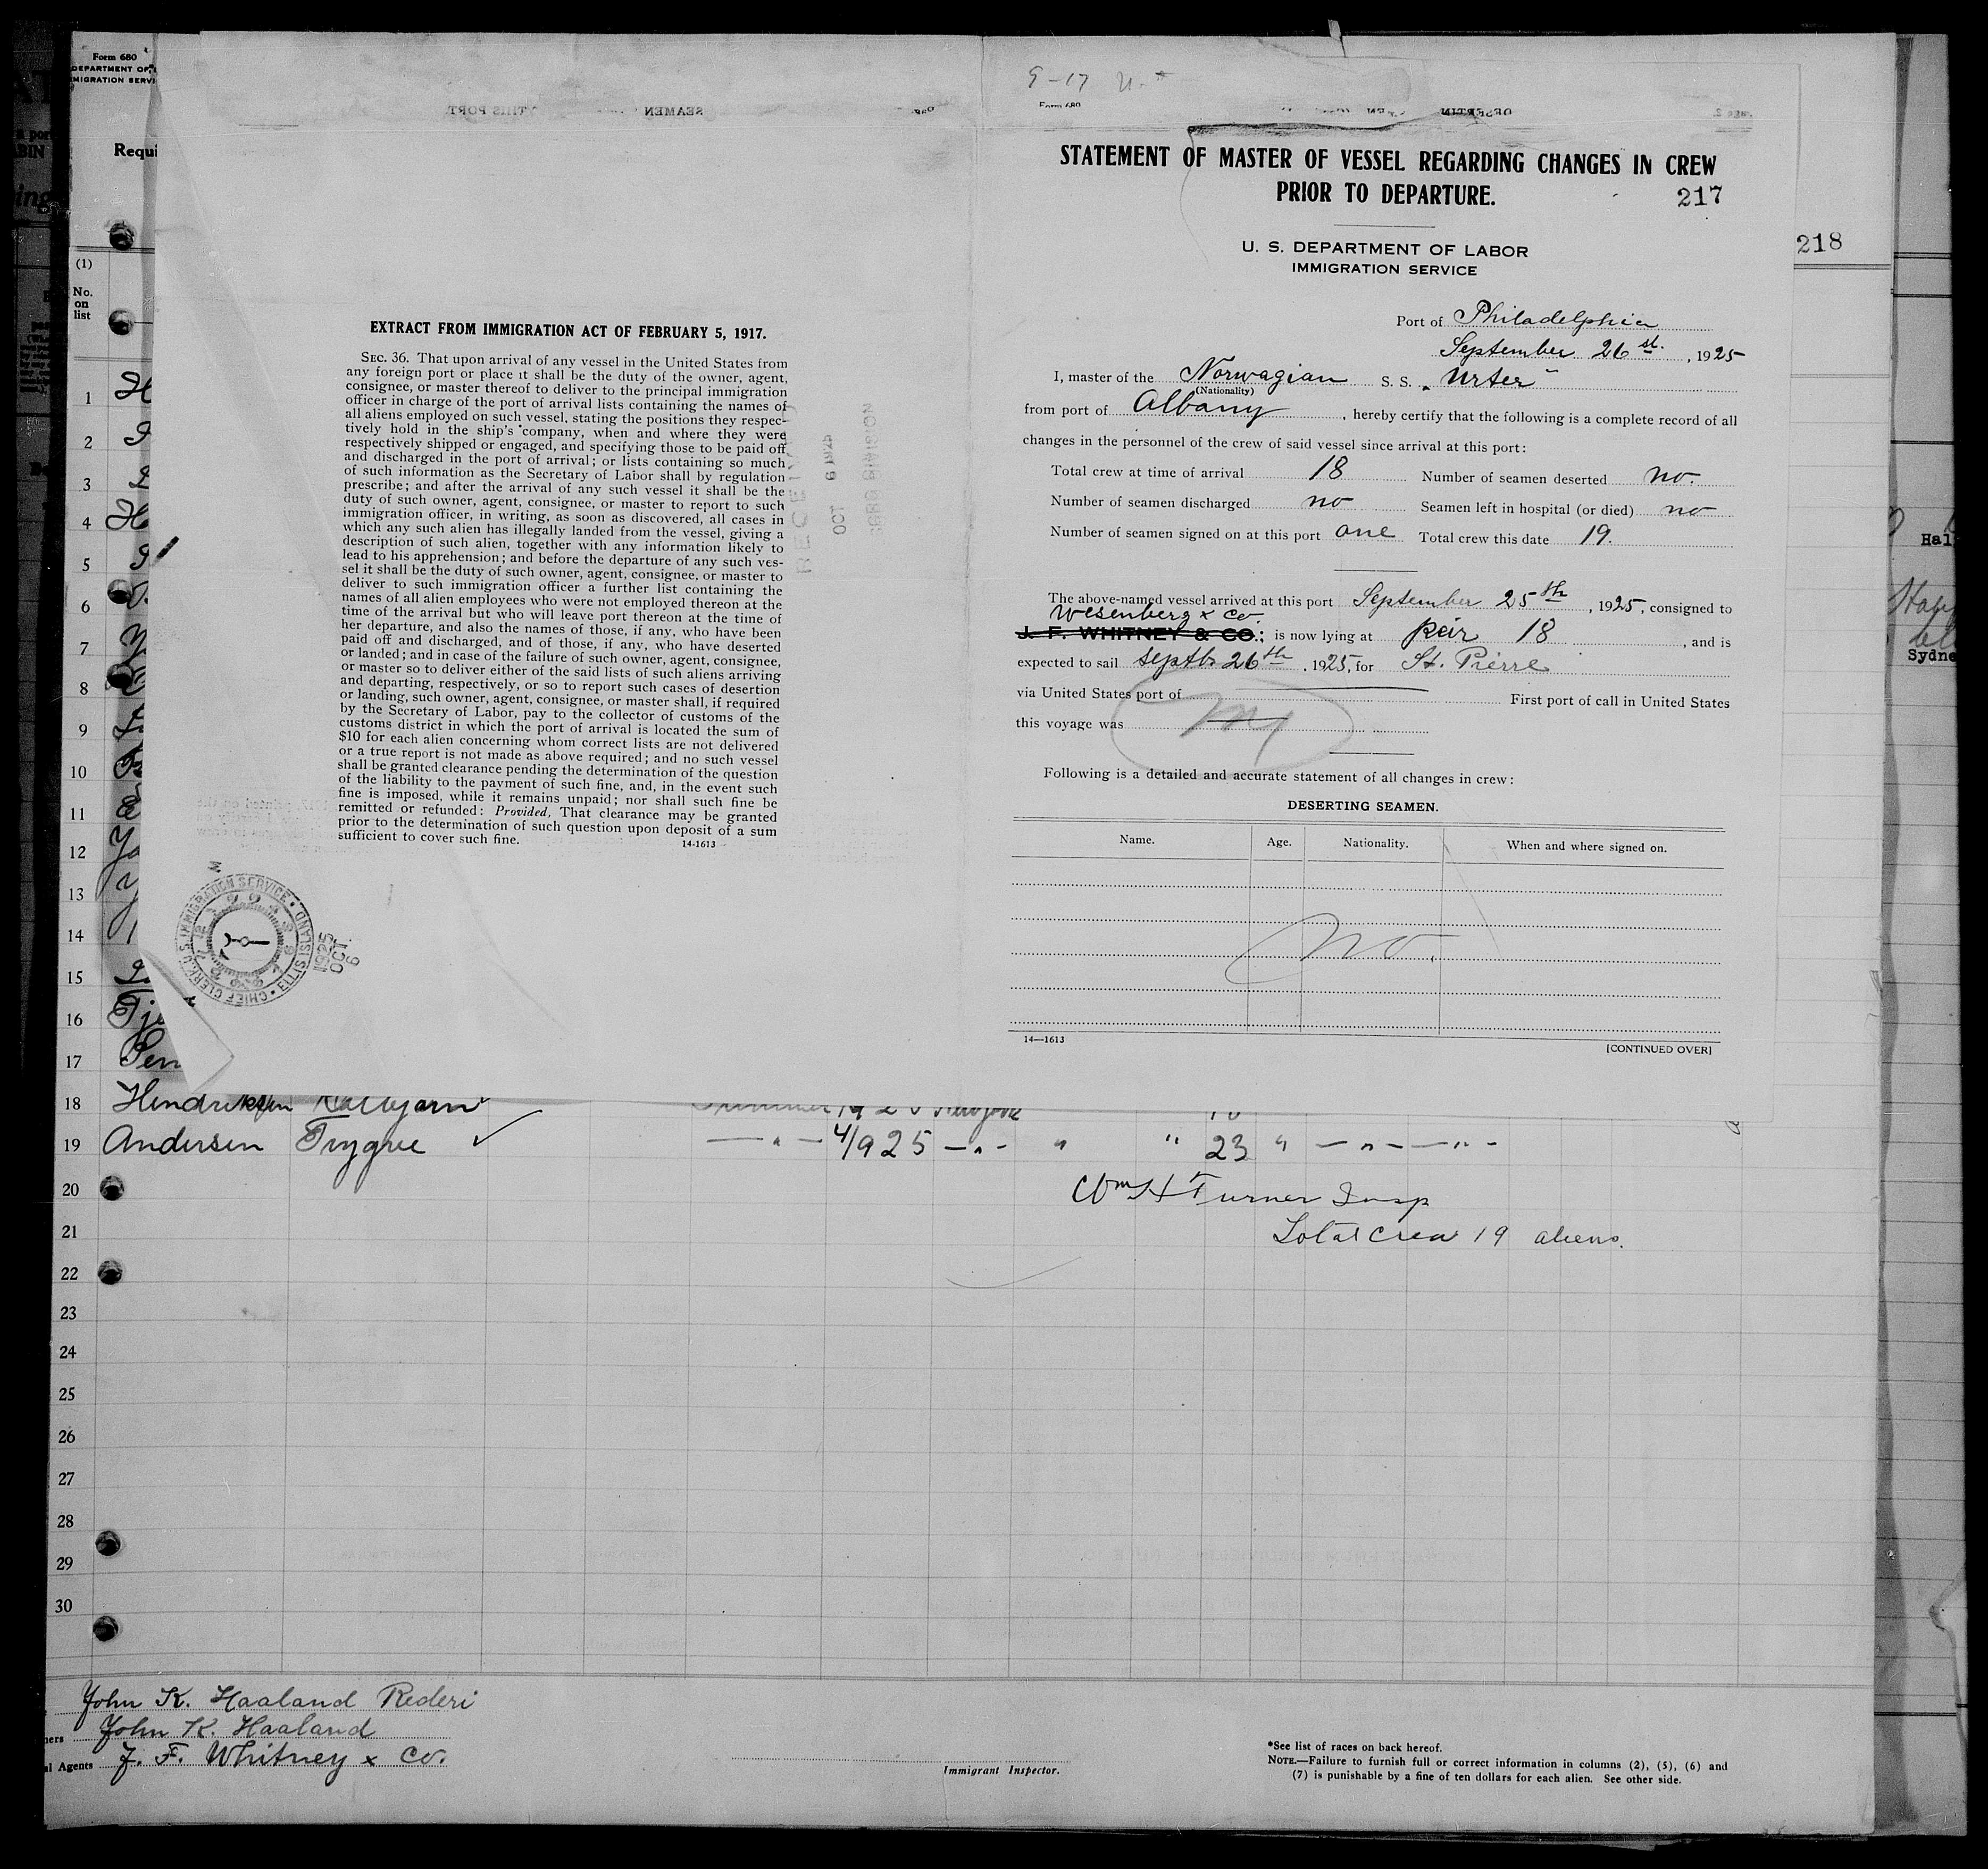 Form 680
DEPARTMENT OF
MIGRATION SERVI
Requi
(1)
No.
on
list
1
2
3
4
5
6
7
8
9
10
11
12
13
14
15
16
17
EXTRACT FROM IMMIGRATION ACT OF FEBRUARY 5, 1917.
SEC. 36. That upon arrival of any vessel in the United States from
any foreign port or place it shall be the duty of the owner, agent,
consignee, or master thereof to deliver to the principal immigration
officer in charge of the port of arrival lists containing the names of
all aliens employed on such vessel, stating the positions they respec-
tively hold in the ship's company, when and where they were
respectively shipped or engaged, and specifying those to be paid off
and discharged in the port of arrival; or lists containing so much
of such information as the Secretary of Labor shall by regulation
prescribe; and after the arrival of any such vessel it shall be the
duty of such owner, agent, consignee, or master to report to such
immigration officer, in writing, as soon as discovered, all cases in
which any such alien has illegally landed from the vessel, giving a
description of such alien, together with any information likely to
lead to his apprehension; and before the departure of any such ves-
sel it shall be the duty of such owner, agent, consignee, or master to
deliver to such immigration officer a further list containing the
names of all alien employees who were not employed thereon at the
time of the arrival but who will leave port thereon at the time of
her departure, and also the names of those, if any, who have been
paid off and discharged, and of those, if any, who have deserted
or landed; and in case of the failure of such owner, agent, consignee,
or master so to deliver either of the said lists of such aliens arriving
and departing, respectively, or so to report such cases of desertion
or landing, such owner, agent, consignee, or master shall, if required
by the Secretary of Labor, pay to the collector of customs of the
customs district in which the port of arrival is located the sum of
$10 for each alien concerning whom correct lists are not delivered
or a true report is not made as above required; and no such vessel
shall be granted clearance pending the determination of the question
of the liability to the payment of such fine, and, in the event such
fine is imposed, while it remains unpaid; nor shall such fine be
remitted or refunded: Provided, That clearance may be granted
prior to the determination of such question upon deposit of a sum
sufficient to cover such fine.
14-1613
CHIEF CLERK, U.S. IMMIGRATION SERVICE • ELLIS ISLAND
1925
OCT
6
9-17
Form 680
STATEMENT OF MASTER OF VESSEL REGARDING CHANGES IN CREW
PRIOR TO DEPARTURE.
217
218
U. S. DEPARTMENT OF LABOR
IMMIGRATION SERVICE
Port of Philadelphia
September 26 st. , 1925
I, master of the Norwagian S. S. „Urter"
(Nationality)
from port of Albany , hereby certify that the following is a complete record of all
changes in the personnel of the crew of said vessel since arrival at this port:
Total crew at time of arrival 18 Number of seamen deserted no.
Number of seamen discharged no Seamen left in hospital (or died) no
Number of seamen signed on at this port one Total crew this date 19.
The above-named vessel arrived at this port September 25th , 1925, consigned to
Wesenberg & Co.
J. F. WHITNEY & CO.; is now lying at peir 18 , and is
expected to sail Septb 26th , 1925, for St. Pierre
via United States port of First port of call in United States
this voyage was
Following is a detailed and accurate statement of all changes in crew:
DESERTING SEAMEN.
Name. Age. Nationality. When and where signed on.
no.
14—1613
[CONTINUED OVER]
18 Hendriksen Kolbjørn
19 Andersen Trygve ✓ — " — 4/9 25 — " - " " 23 " — " — — " -
20
Wm H Turner Insp
21
Total Crew 19 aliens.
22
23
24
25
26
27
28
29
30
John K. Haaland Rederi
ners John K. Haaland
al Agents J. F. Whitney & Co.
Immigrant Inspector.
*See list of races on back hereof.
NOTE.—Failure to furnish full or correct information in columns (2), (5), (6) and
(7) is punishable by a fine of ten dollars for each alien. See other side.